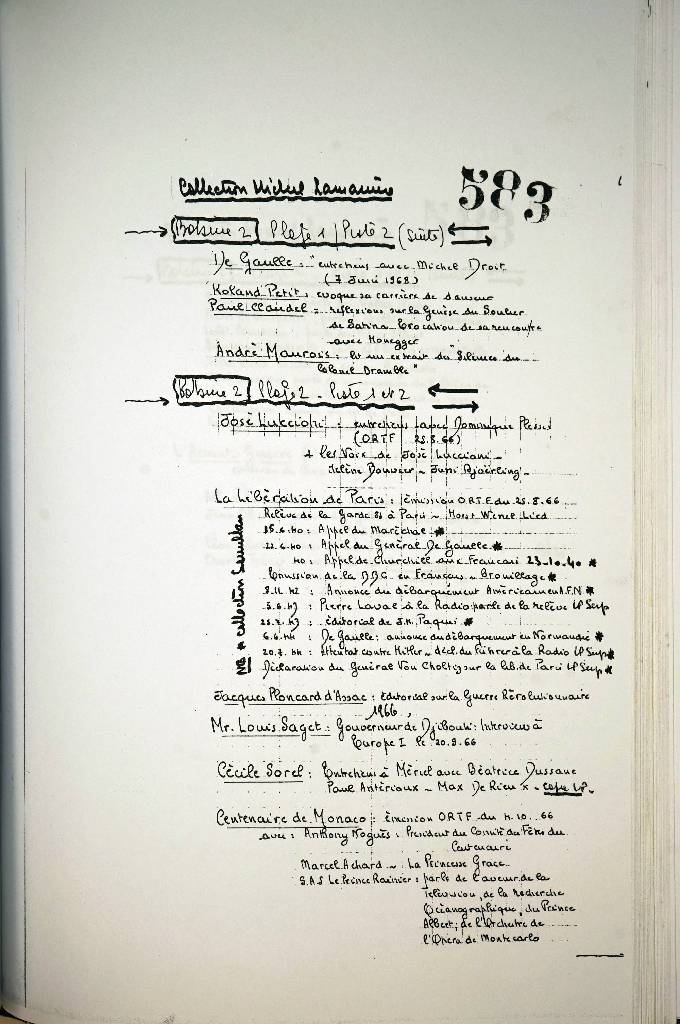 Collection Michel Lamanière
583
Bobine 2 Plage 1 / Piste 2 (suite)
De Gaulle : "entretiens avec Michel Droit
(7 Juin 1968)
Roland Petit : evoque sa carrière de danseur
Paul Claudel = reflexions sur la Genèse du Soulier
de Satin. Evocation de sa rencontre
avec Honegger
Andrè Maurois : lit un extrait du "Silence du
Colonel Bramble"
Bobine 2 Plage 2 - Piste 1 et 2
Josè Luccioni : entretiens avec Dominique Plessis
(ORTF 25.8.66)
+ les Voix de Josè Luccioni -
Hélène Bouvier - Jussi Bjoërling -
La Libèration de Paris : émission O.R.T.F du 25.8.66
Relève de la Garde à Paris - Horst Wessel Lied
.6.40 : Appel du Marèchal *
22.6.40 : Appel du Gèneral De Gaulle *
40 : Appel de Churchill aux Francais 23.10.40 *
Emission de la BBC en Français - Brouillage *
8.11.42 : Annonce du dèbarquement Américain en A.F.N *
.6.43 : Pierre Laval à la Radio parle de la relève *
.43 : èditorial de J.H. Paquis *
6.6.44 : De Gaulle : annonce du dèbarquement en Normandie *
20.7.44 : Attentat contre Hitler - dècl. du Führer à la Radio *
Dèclaration du Gèneral Von Choltitz sur la lib. de Paris *
NB * collection
Jacques Ploncard d'Assac : èditorial sur la Guerre Rèvolutionnaire
1966,
Mr. Louis Saget : Gouverneur de Djibouti : Interview à
Europe I le 20.9.66
Cècile Sorel : Entretiens à Mèriel avec Bèatrice Dussane
Paul Antèrioux - Max De Rieux -
Centenaire de Monaco : èmission ORTF du 4.10.66
avec : Anthony Noguès : President du Comitè des Fêtes du
Centenaire
Marcel Achard - La Princesse Grace
S.A.S Le Prince Rainier : parle de l'avenir de la
Tèlèvision, de la Recherche
Ocèanographique, du Prince
Albert ; de l'Orchestre de
l'Opèra de Monte carlo